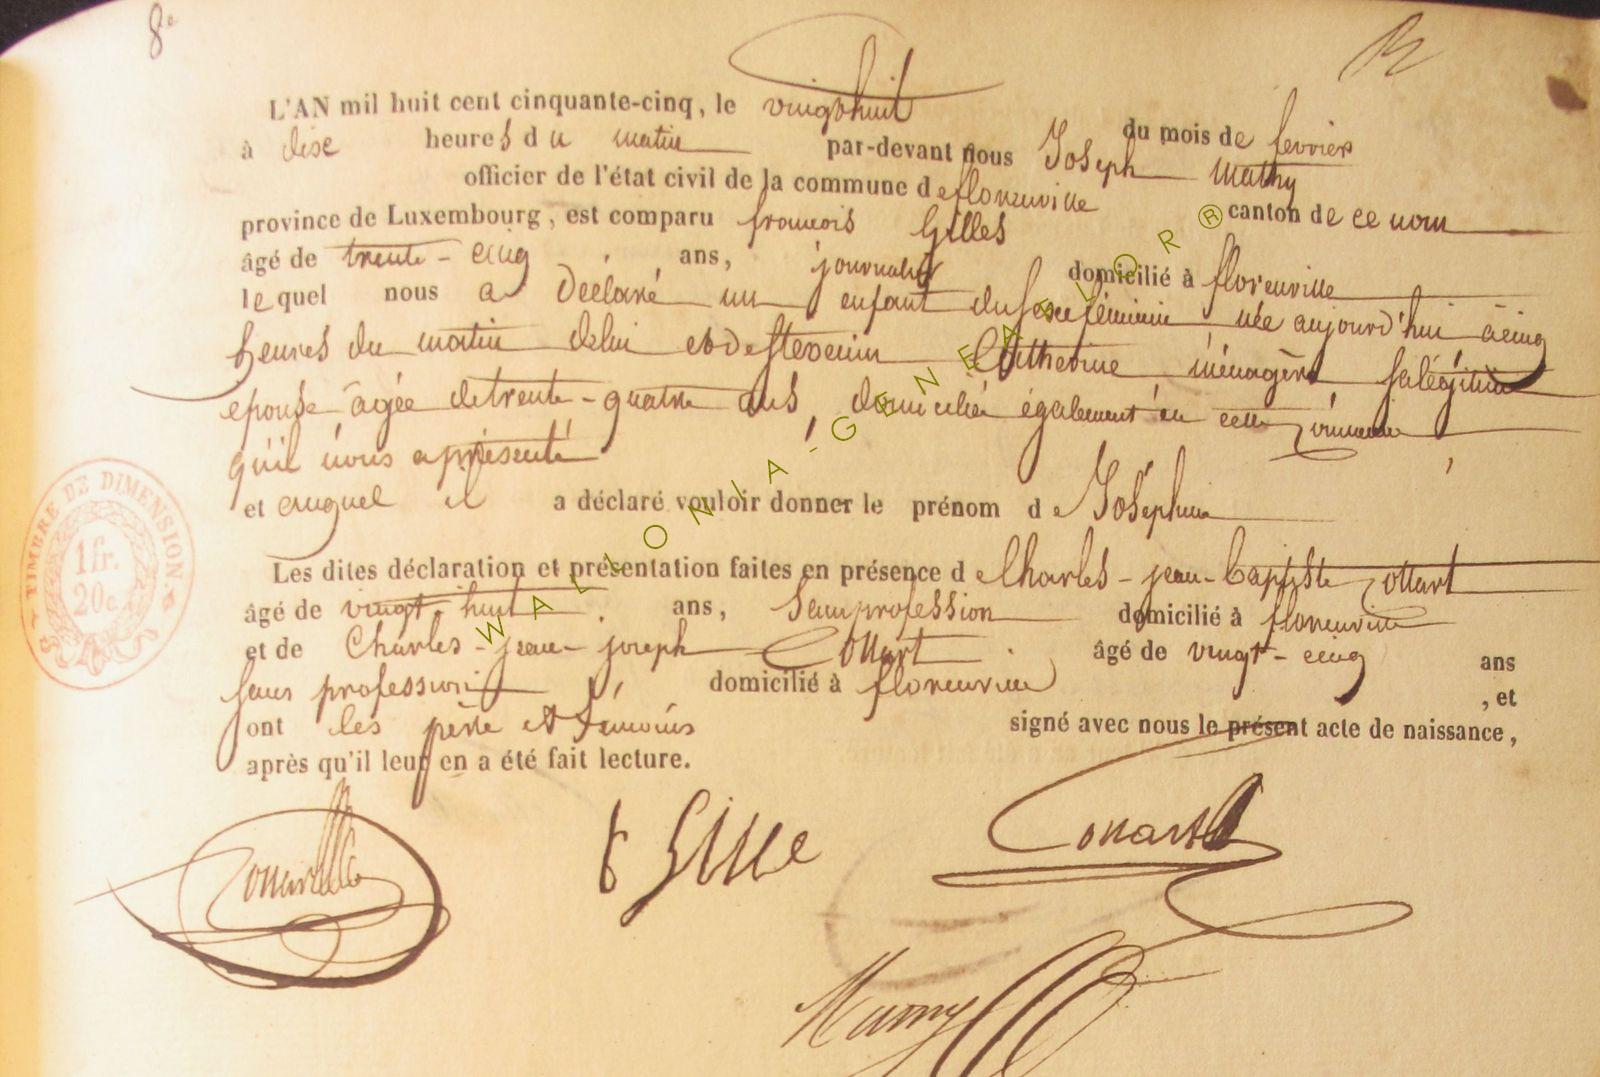 8e
L'AN mil huit cent cinquante-cinq, le vingt huit du mois de fevrier
à dix heures du matin par-devant nous Joseph Mathy
officier de l'état civil de la commune de florenville canton de ce nom
province de Luxembourg, est comparu francois Gilles
âgé de trente-cinq ans, journalier domicilié à florenville
lequel nous a Déclaré un enfant du sexe féminin née aujourd'hui à cinq
heures du matin de lui et de Catherine ménagère sa légitime
epouse âgée de trente-quatre ans, domiciliée également en cette
qu'il nous a présenté
et auquel il a déclaré vouloir donner le prénom de Joséphine
Les dites déclaration et présentation faites en présence de Charles-jean-baptiste
âgé de vingt-huit ans, sans profession domicilié à florenville
et de Charles-jean-joseph âgé de vingt-cinq ans
sans profession domicilié à florenville , et
ont les père et témoins signé avec nous le présent acte de naissance,
après qu'il leur en a été fait lecture.
TIMBRE DE DIMENSION.
1 fr.
20c
WALLONIA-GENEALOR®
Gille